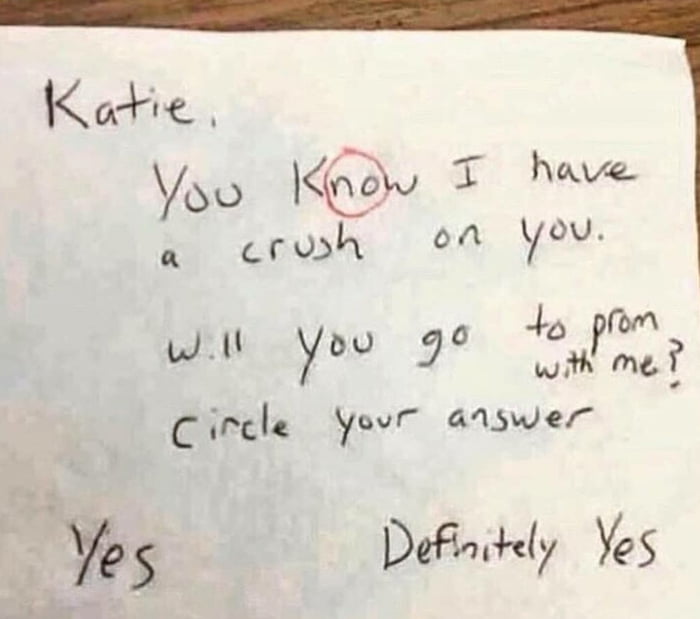 Katie,
You Know I have
a crush on you.
Will you go to prom
with me?
Circle your answer
Yes Definitely Yes